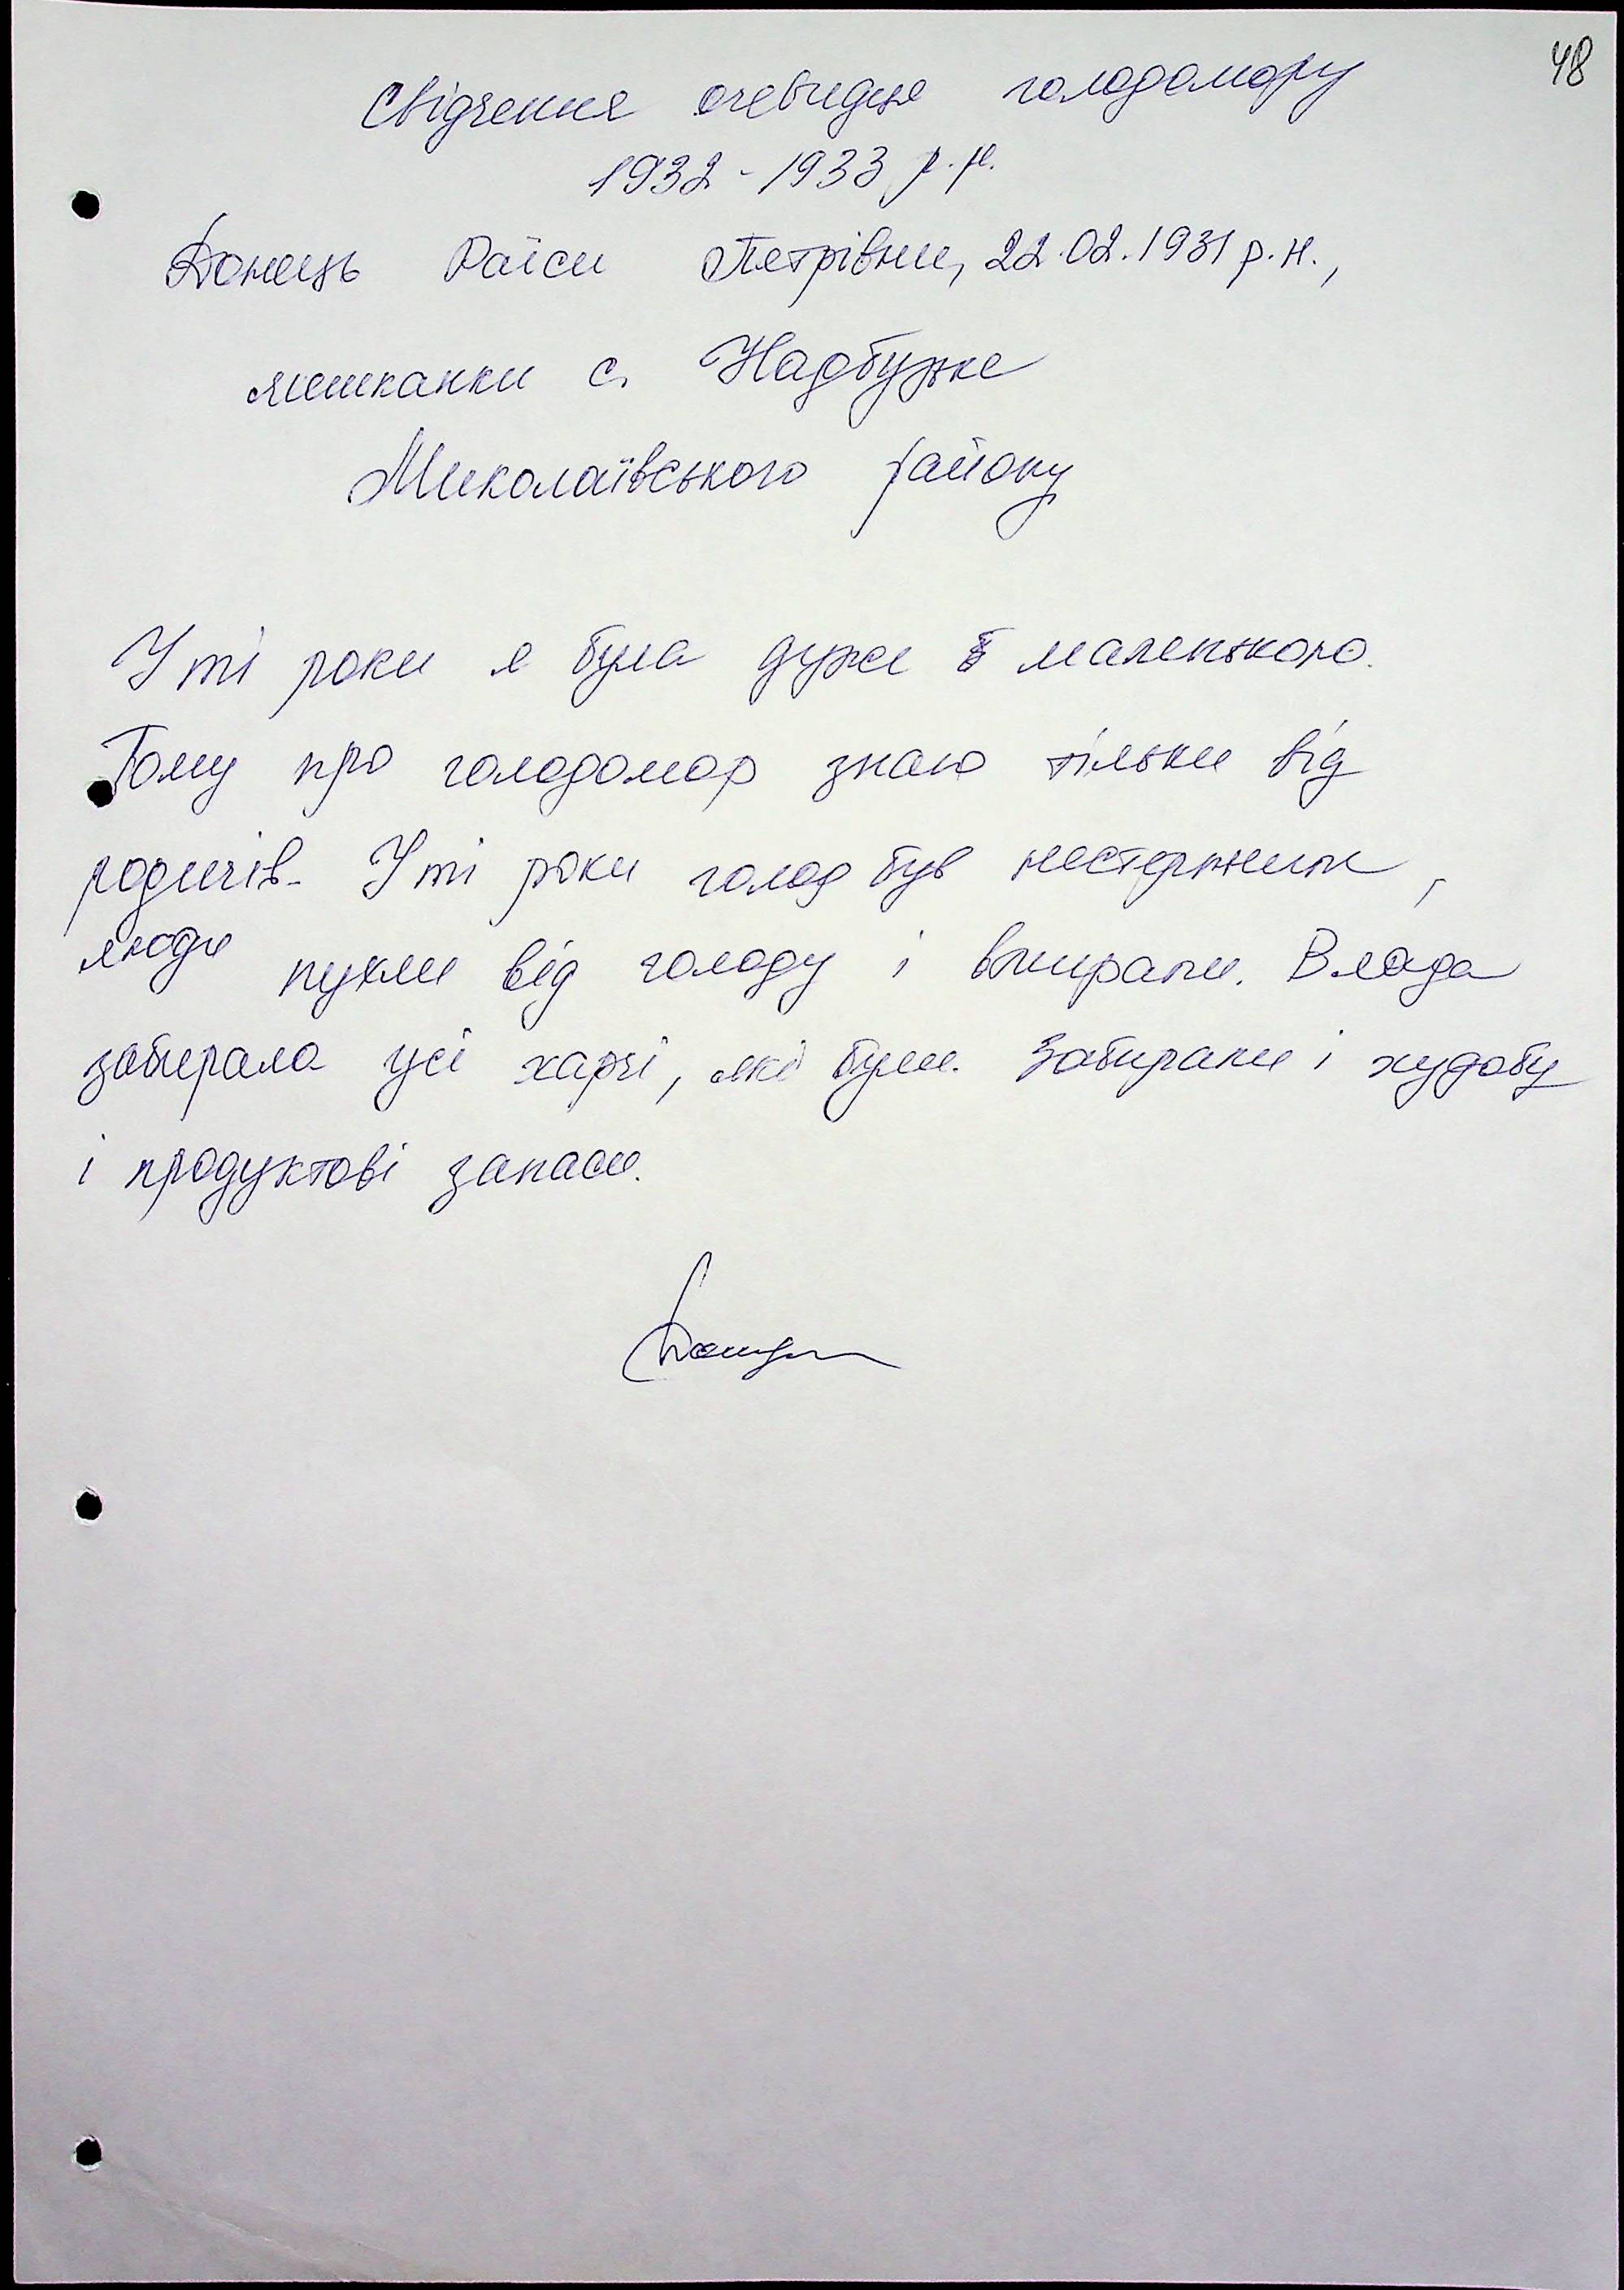 48
Свідчення очевидця голодомору
1932-1933 р.р.
Донець Раїси Петрівни, 22.02.1931 р.н.,
мешканки с. Надбужке
Миколаївського району
У ті роки я була дуже маленькою.
Тому про голодомор знаю тільки від
родичів. У ті роки голод був нестерпним,
люди пухли від голоду і вмирали. Влада
забирала усі харчі, які були. Забирали і худобу
і продуктові запаси.